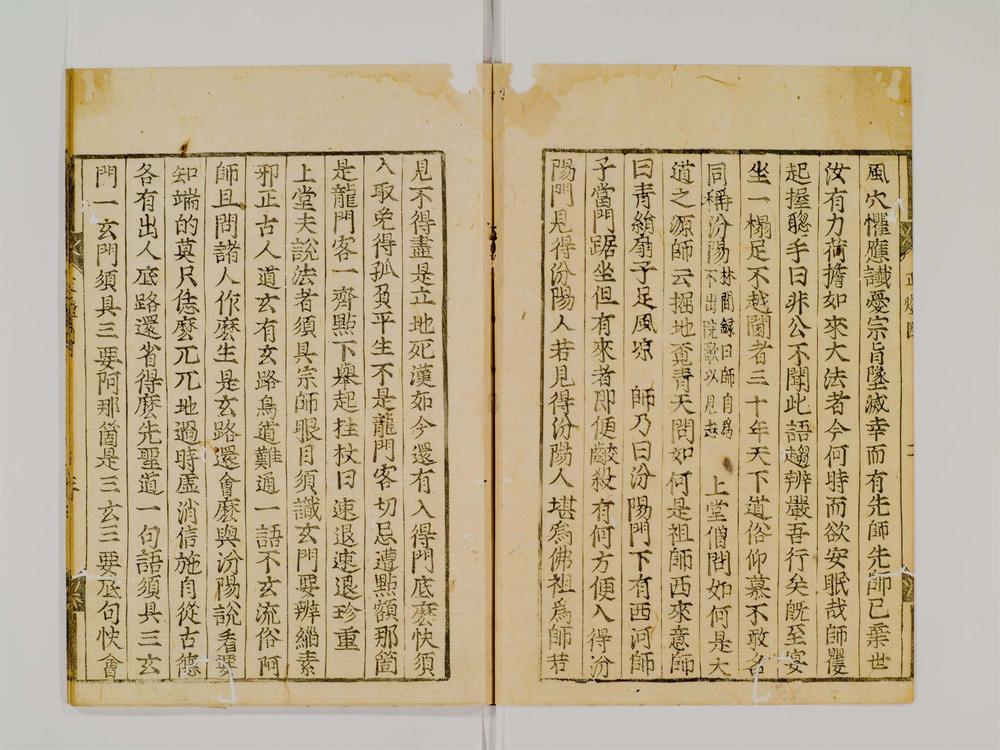 風穴懼應讖憂宗旨墜滅幸而有先師先師已棄世
汝有力荷擔如來大法者今何時而欲安眠哉師矍
起握聰手曰非公不聞此語趨辨嚴吾行矣旣至宴
坐一榻足不越閫者三十年天下道俗仰慕不敢名
同稱汾陽
林間録曰師自爲
不出院歌以見志
上堂僧問如何是大
道之源師云掘地覓靑天問如何是祖師西來意師
曰靑絹扇子足風凉 師乃曰汾陽門下有西河師
子當門踞坐但有來者即便齩殺有何方便入得汾
陽門見得汾陽人若見得汾陽人堪爲佛祖爲師若
見不得盡是立地死漢如今還有人得門底麽快須
入取免得孤負平生不是龍門客切忌遭點額那箇
是龍門客一齊點下擧起拄杖曰速退速退珍重
上堂夫說法者須具宗師眼目須識玄門要辨緇素
邪正古人道玄有玄路鳥道難通一語不玄流俗阿
師且問諸人作麽生是玄路還會麽與汾陽說看要
知端的莫只恁麽兀兀地過時虛消信施自從古德
各有出人底路還省得麽先聖道一句語須具三玄
門一玄門須具三要阿那箇是三玄三要底句快會